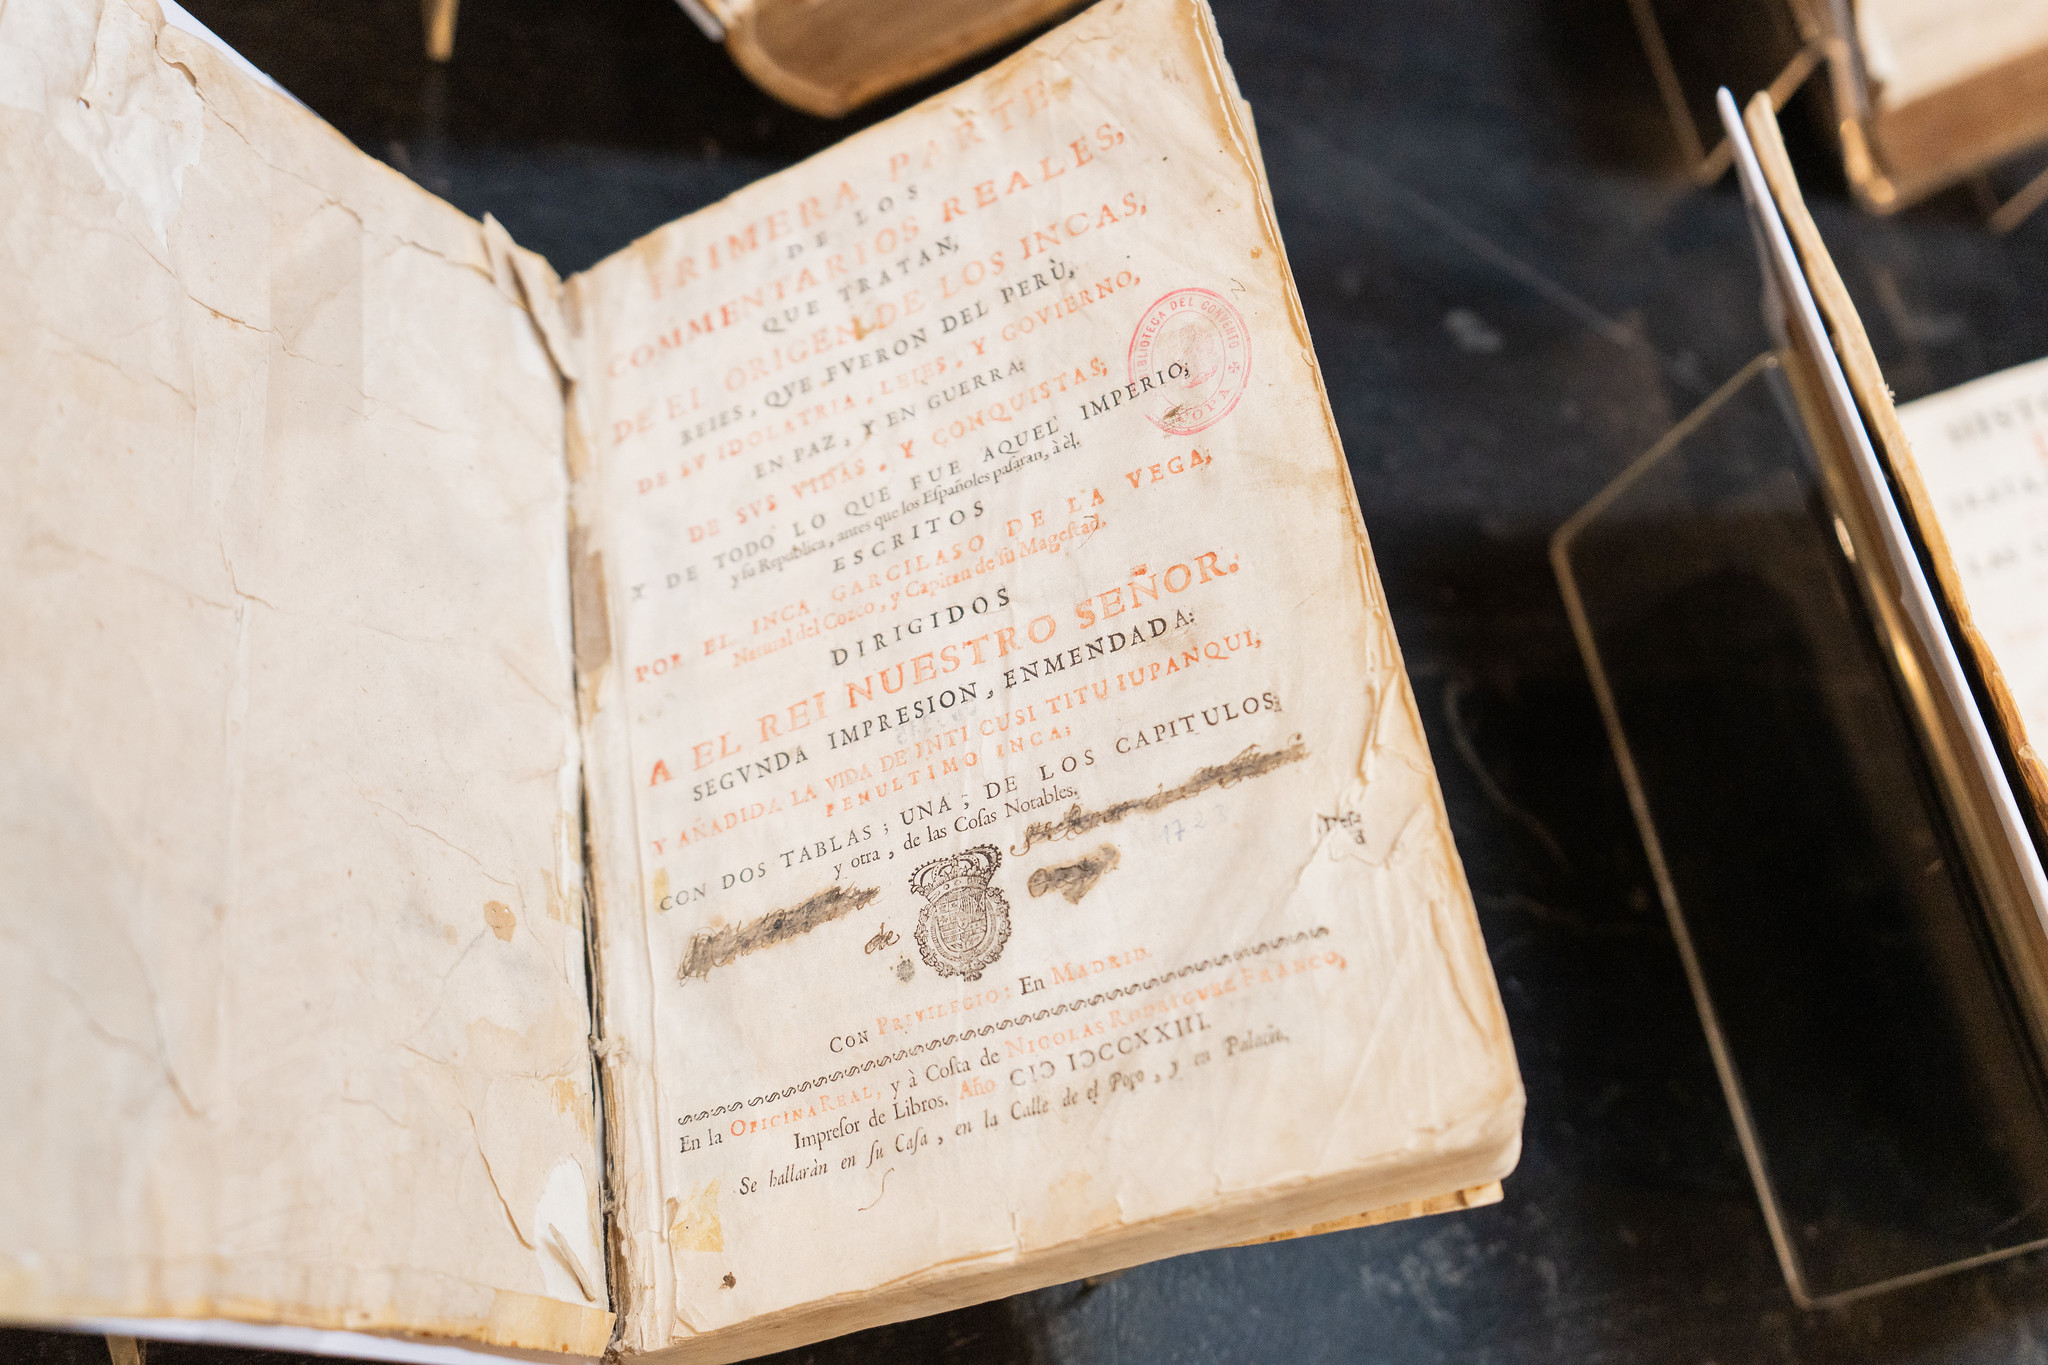 PRIMERA PARTE
DE LOS
COMMENTARIOS REALES,
QUE TRATAN,
DE EL ORIGEN DE LOS INCAS,
REIES, QVE FVERON DEL PERÙ,
DE SV IDOLATRIA, LEIES, Y GOVIERNO,
EN PAZ, Y EN GUERRA:
DE SVS VIDAS, Y CONQUISTAS;
Y DE TODO LO QUE FUE AQUEL IMPERIO;
y ſu Republica, antes que los Eſpañoles paſaran, à èl.
ESCRITOS
POR EL INCA GARCILASO DE LA VEGA;
Natural del Cozco, y Capitan de ſu Mageſtad.
DIRIGIDOS
A EL REI NUESTRO SEÑOR.
SEGVNDA IMPRESION, ENMENDADA:
Y AÑADIDA LA VIDA DE INTI CUSI TITU IUPANQUI,
PENULTIMO INCA;
CON DOS TABLAS; UNA; DE LOS CAPITULOS;
y otra, de las Coſas Notables.
1723
de
CON PRIVILEGIO: En MADRID.
En la OFICINA REAL, y à Coſta de NICOLAS RODRIGUEZ FRANCO,
Impreſor de Libros. Año CIƆ IƆCCXXIII.
Se hallaràn en ſu Caſa, en la Calle de el Poço, y en Palacio.
BIBLIOTECA DEL CONVENTO
OCOPA